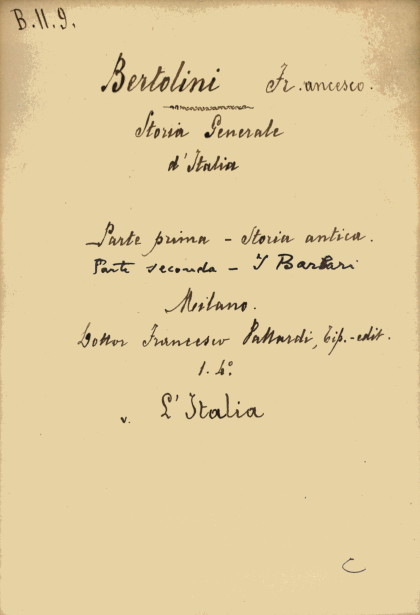 B.11.9.
Bertolini Fr.ancesco.
Storia Generale
d'Italia
Parte prima - Storia antica.
Parte seconda - I Barbari
Milano.
Dottor Francesco Vallardi, Tip.-edit.
v. L'Italia
C